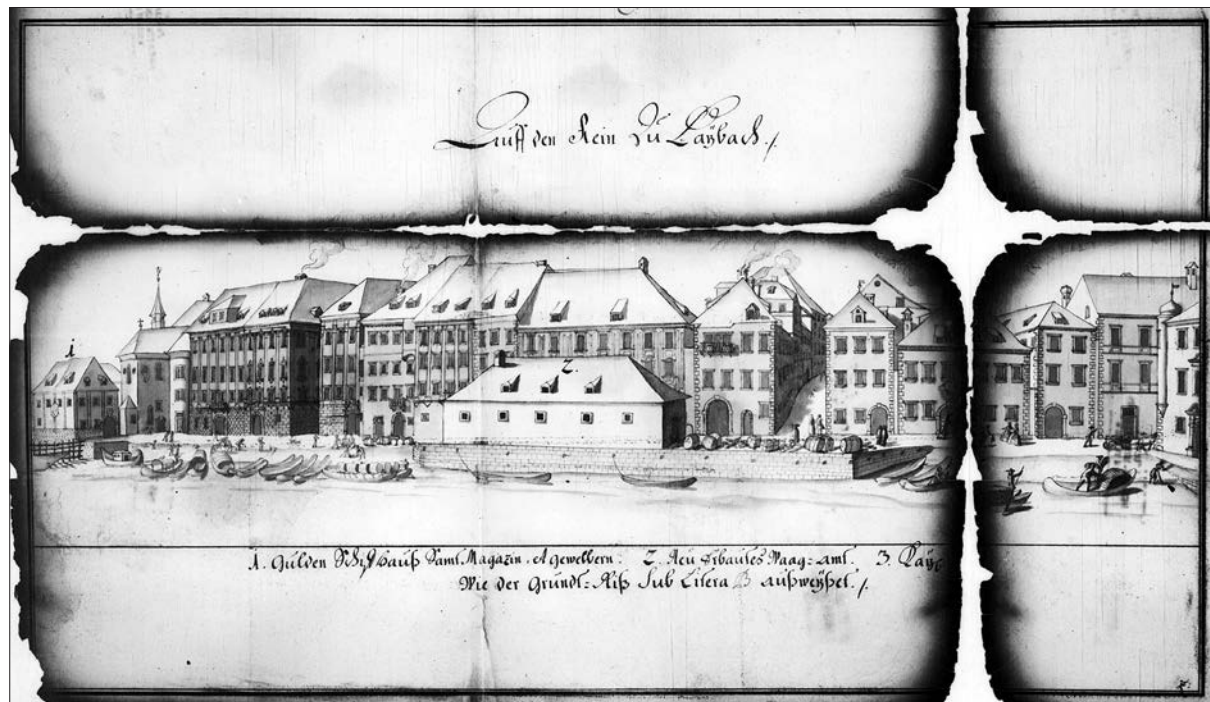 Auff den Rein Zu Laÿbach ./.
1.
2.
1. Gulden Schif Hauß Samt Magazin, et gewelbern. 2. Neu Erbautes Waag-amt. 3. Laÿb
Wie der Grundt-Riß Sub Litera B außweÿset ./.